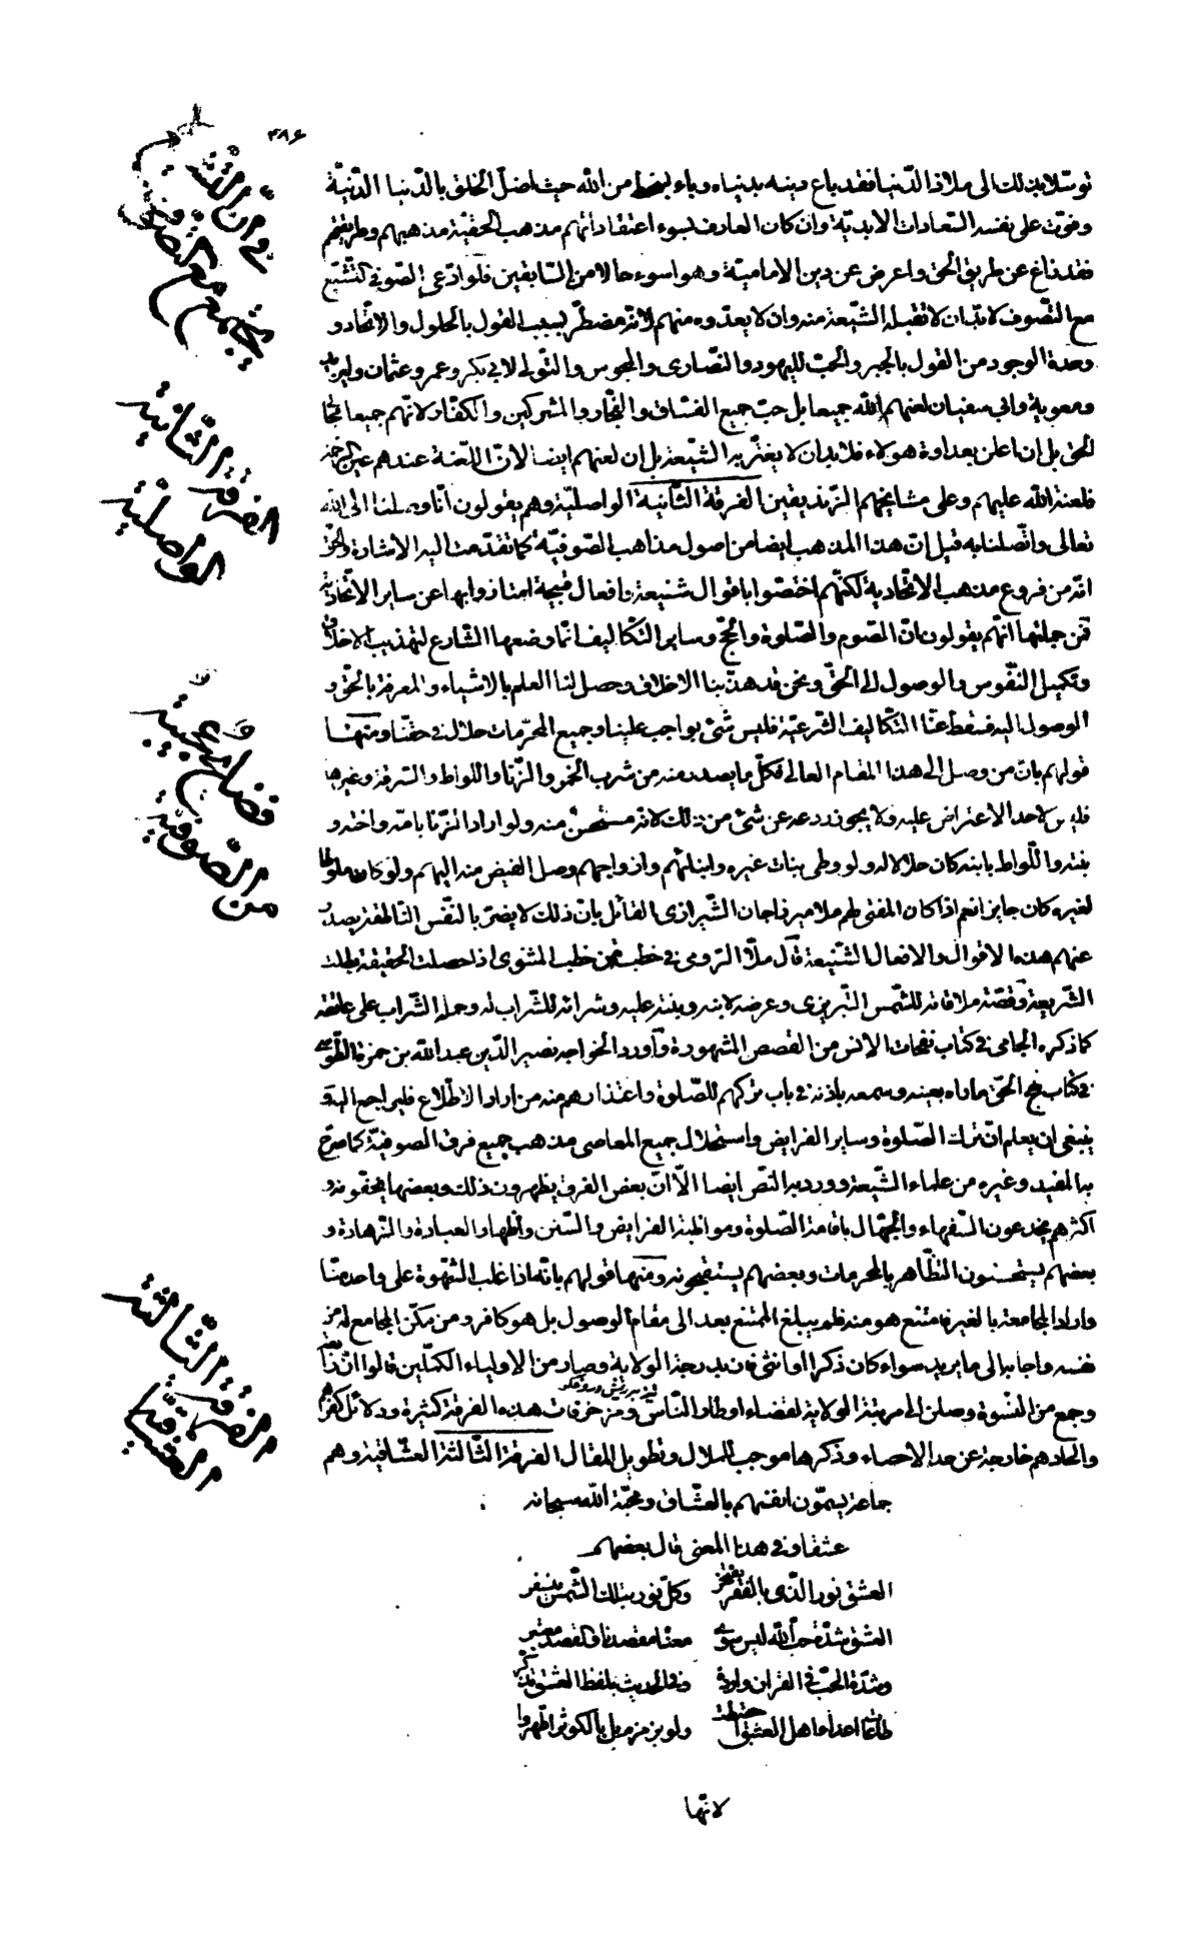 ۴۸۶
توسّلا بذلك الى ملاذ الدّنيا فقد باع دينه بدنياه وباء بسخط من الله حيث اضلّ الخلق بالدّنيا الدّنيّة
وفوّت على نفسه السّعادات الابديّة وان كان العارف لسوء اعتقاد انّهم مذهب الحقيّة مذهبهم وطريقتهم
فقد زاغ عن طريق الحق واعرض عن دين الاماميّة وهو اسوء حالا من السّابقين فلو ادّعى الصّوفى التّشيّع
مع التّصوف لا بدّ ان لا تقبله الشّيعة منه وان لا يعدّوه منهم لانّه مضطرّ بسبب القول بالحلول والاتّحاد و
وحدة الوجود من القول بالجبر والحبّ لليهود والنّصارى والمجوس والتّولى لابى بكر وعمر وعثمان
ومعوية وابى سفيان لعنهم الله جميعا بل حبّ جميع الفسّاق والفجّار والمشركين والكفّار لانّهم جميعا
الحق بل ان اعلن بعداوة هولاء فلا بدان لا يغترّ به الشّيعة بل ان لعنهم ايضا لانّ اللّعنة عندهم عين الرّحمة
فلعنة الله عليهم وعلى مشايخهم الزّنديقين الفرقة الثّانية الواصليّة وهم يقولون انّا وصلنا الى الله
تعالى واتّصلنا به قيل انّ هذا المذهب ايضا من اصول مذاهب الصّوفيّة كما تقدّمت اليه الاشارة والحق
انّه من فروع مذهب الاتّحادية لكنّهم اختصّوا باقوال شنيعة وافعال قبيحة امتازوا بها عن ساير الاتّحاديّة
فمن جملتها انّهم يقولون انّ الصّوم والصّلوة والحجّ وساير التكاليف انّما وضعها الشّارع لتهذيب الاخلاق
وتكميل النّفوس والوصول الى الحقّ ونحن قد هذّبنا الاخلاق وحصل لنا العلم بالاشياء والمعرفة بالحق و
الوصول اليه فسقط عنّا التكاليف الشّرعيّة فليس شئ بواجب علينا وجميع المحرّمات حلال فى حقّنا ومنها
قولهم بانّ من وصل الى هذا المقام العالى فكلّ ما يصدر منه من شرب الخمر والزّنا واللواط والسّرقة وغيرها
فليس لاحد الاعتراض عليه ولا يجوز ردعه عن شئ من ذلك لانّه مستحسن منه ولو اراد الزّنا بامّه واخته و
بنته واللّواط بابنه كان حلالا له ولو وطى بنات غيره وابنائهم وازواجهم وصل الفيض منه اليهم ولو كان ملوطا
لغيره كان جايزا نعم اذا كان المفتى لهم ملا ميرزا جان الشّيرازى القائل بانّ ذلك لا يضرّ بالنّفس النّاطقة يصدر
عنهم هذه الاقوال والافعال الشّنيعة قال ملّا الرّومى فى خطبة من خطب المثنوى اذا حصلت الحقيقة بطلت
الشّريعة وقصّة ملاقاته للشّمس التّبريزى وعرضه لابنه وبنته عليه وشرائه للشّراب له وحمله الشّراب على عاتقه
كما ذكره الجامى فى كتاب نفحات الانس من القصص المشهودة وآورد الخواجه نصير الدّين عبد الله بن حمزة الطّوسى
فى كتاب نهج الحقّ ما راه بعينه وسمعه باذنه فى باب تركهم للصّلوة واعتذارهم منه من اراد الاطّلاع فليراجع اليه و
ينبغى ان يعلم انّ ترك الصّلوة وساير الفرايض واستحلال جميع المعاصى مذهب جميع فرق الصوفيّة كما صرّح
به المفيد وغيره من علماء الشّيعة وورد به النصّ ايضا الّا انّ بعض الفرق يظهرون ذلك وبعضها يخفونه و
اكثرهم يخدعون السّفهاء والجهّال باقامة الصّلوة ومواظبة الفرايض والسّنن واظهار العبادة والزّهادة و
بعضهم يستحسنون التظّاهر بالمحرمات وبعضهم يستقبحونه ومنها قولهم بانّه اذا غلب الشّهوة على واحد منّا
واراد المجامعة بالغير فامتنع هو منه فلم يبلغ الممتنع بعد الى مقام الوصول بل هو كافر ومن مكّن المجامع له من
نفسه واجابه الى ما يريد سواء كان ذكرا او انثى فاز بدرجة الولاية وصار من الاولياء الكمّلين قالوا انّ
وجمع من النّسوة وصلن الى مرتبة الولاية لقضاء اوطار النّاس ومزخرفات هذه الفرقة كثيرة ودلائل كفرهم
والحادهم خارجة عن حد الاحصاء وذكرها موجب للملال وتطويل للمقال الفرقة الثّالثة العشّاقية وهم
جماعة يسمّون انفسهم بالعشّاق ومحبّة الله سبحانه
عشقا وفى هذا المعنى قال بعضهم
العشق نور الّذى بالفقر يفتخر وكلّ نور بتلك الشّمس ينسفر
العشق شدّة حبّ الله ليس سوى معناه مقصدنا والقصد معتبر
وشدّة الحبّ فى القران واردة وفى الحديث بلفظ العشق تذكر
طاعات اعداء اهل العشق ولو بزمزم بل بالكوثر اطّهروا
لانّها
فى ان التشيع
لا يجتمع مع التصوف
الفرقة الثّانية
الواصليّة
فضايح عجيبة
من الصّوفيّة
الفرقة الثّالثة
العشّاقيّة